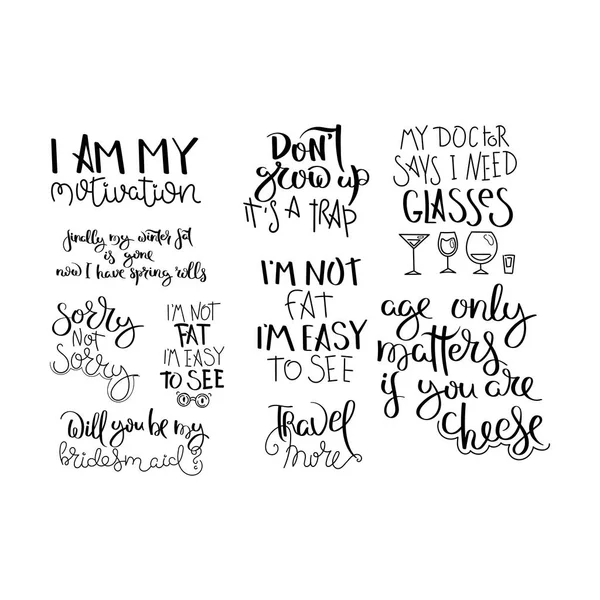 I AM MY
motivation
finally my winter fat
is gone
now I have spring rolls
Sorry
Not
Sorry
I'M NOT
FAT
I'M EASY
TO SEE
Will you be my
bridesmaid?
DON'T
grow up
IT'S A TRAP
I'M NOT
FAT
I'M EASY
TO SEE
Travel
more
MY DOCTOR
SAYS I NEED
GLASSES
age only
matters
if you are
cheese